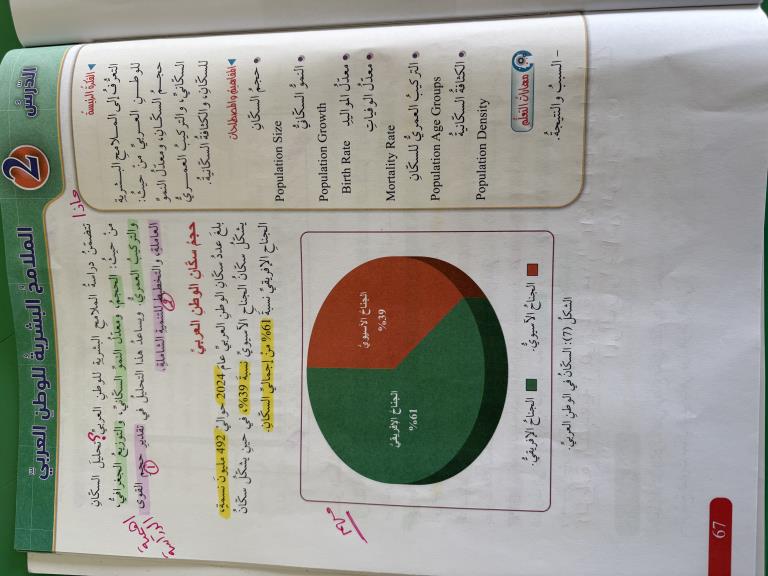 الدرس 2
الملامح البشرية للوطن العربي
◄ الفكرة الرئيسة
التعرُّفُ إلى الملامحِ البشريةِ
للوطنِ العربيِّ من حيثُ:
حجمُ السكّانِ، ومعدّلُ النموِّ
السكّانيِّ، والتركيبُ العمريُّ
للسكّانِ، والكثافةُ السكّانيةُ.
◄ المفاهيم والمصطلحات
• حجمُ السكّانِ
Population Size
• النموُّ السكّانيُّ
Population Growth
• معدّلُ المواليدِ Birth Rate
• معدّلُ الوفياتِ
Mortality Rate
• التركيبُ العمريُّ للسكّانِ
Population Age Groups
• الكثافةُ السكّانيةُ
Population Density
مهارات التعلم
- السببُ والنتيجةُ.
ماذا
تتضمّنُ دراسةُ الملامحِ البشريةِ للوطنِ العربيِّ؟ تحليلَ السكّانِ
من حيثُ: الحجمِ، ومعدّلِ النموِّ السكّانيِّ، والتوزيعِ الجغرافيِّ،
والتركيبِ العمريِّ، ويساعدُ هذا التحليلُ في تقديرِ حجمِ القوى
العاملةِ، والتخطيطِ للتنميةِ الشاملةِ.
1
2
حجمُ سكّانِ الوطنِ العربيِّ
بلغَ عددُ سكّانِ الوطنِ العربيِّ عامَ 2024 حواليْ 492 مليونَ نسمةٍ،
يشكّلُ سكّانُ الجناحِ الآسيويِّ نسبةَ 39%، في حينِ يشكّلُ سكّانُ
الجناحِ الإفريقيِّ نسبةَ 61% من إجماليِّ السكّانِ.
الجناحُ الآسيويُّ
%39
الجناحُ الإفريقيُّ
%61
الجناحُ الإفريقيُّ. الجناحُ الآسيويُّ.
الشكلُ (7): السكّانُ في الوطنِ العربيِّ.
67